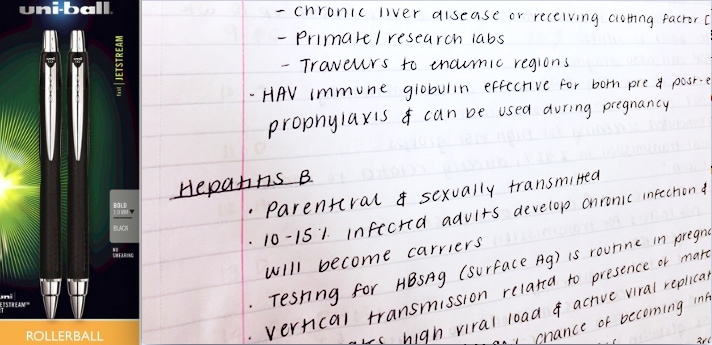 uni-ball
fast JETSTREAM
BOLD
1.0 MM
BLACK
NO
SMEARING
uni
JETSTREAM™
RT
ROLLERBALL
- chronic liver disease or receiving clotting factor
- Primate/research labs
- Travelers to endemic regions
- HAV immune globulin effective for both pre & post-e
prophylaxis & can be used during pregnancy
Hepatitis B
· Parenteral & sexually transmitted
· 10-15% infected adults develop chronic infection &
will become carriers
· Testing for HBsAg (surface Ag) is routine in pregna
· vertical transmission related to presence of mate
high viral load & active viral replicat
chance of becoming inf